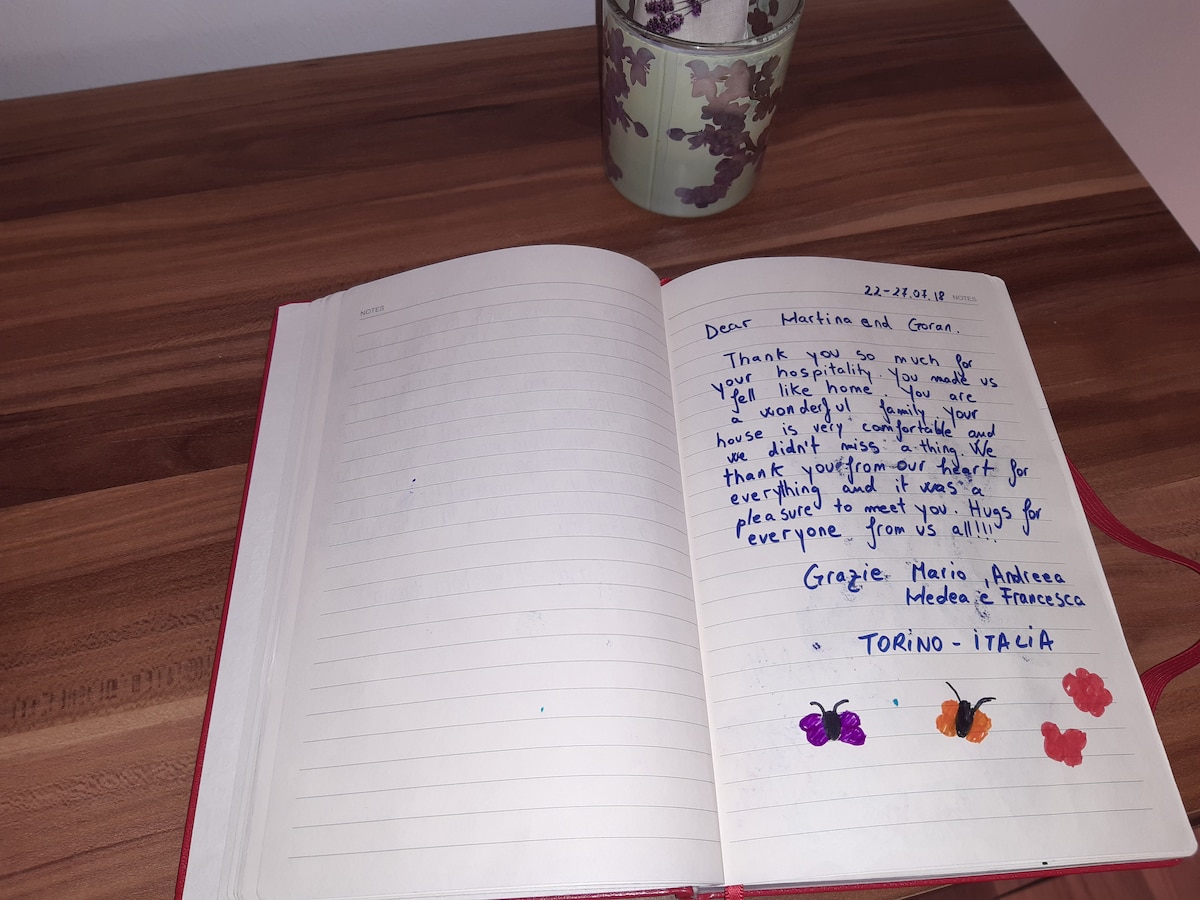 NOTES
22-27.07.18 NOTES
Dear Martina and Goran.
Thank you so much for
your hospitality. You made us
fell like home. You are
a wonderful family. your
house is very comfortable and
we didn't miss a thing. We
thank you from our heart for
everything and it was a
pleasure to meet you. Hugs for
everyone from us all!!!
Grazie Mario, Andreea
Medea e Francesca
TORiNO - iTALiA